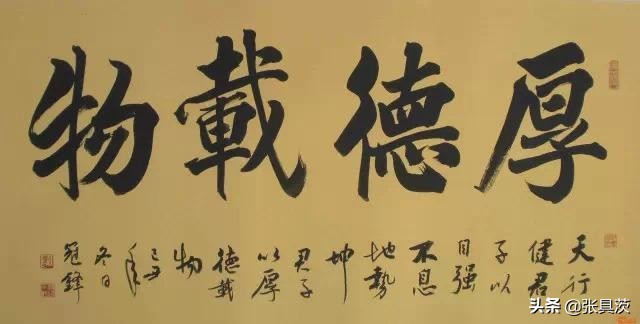 厚德載物
天行
健君
子以
自强
不息
地勢
坤
君子
以厚
德載
物
己丑
年
冬日
冠鋒
头条 @张具茨